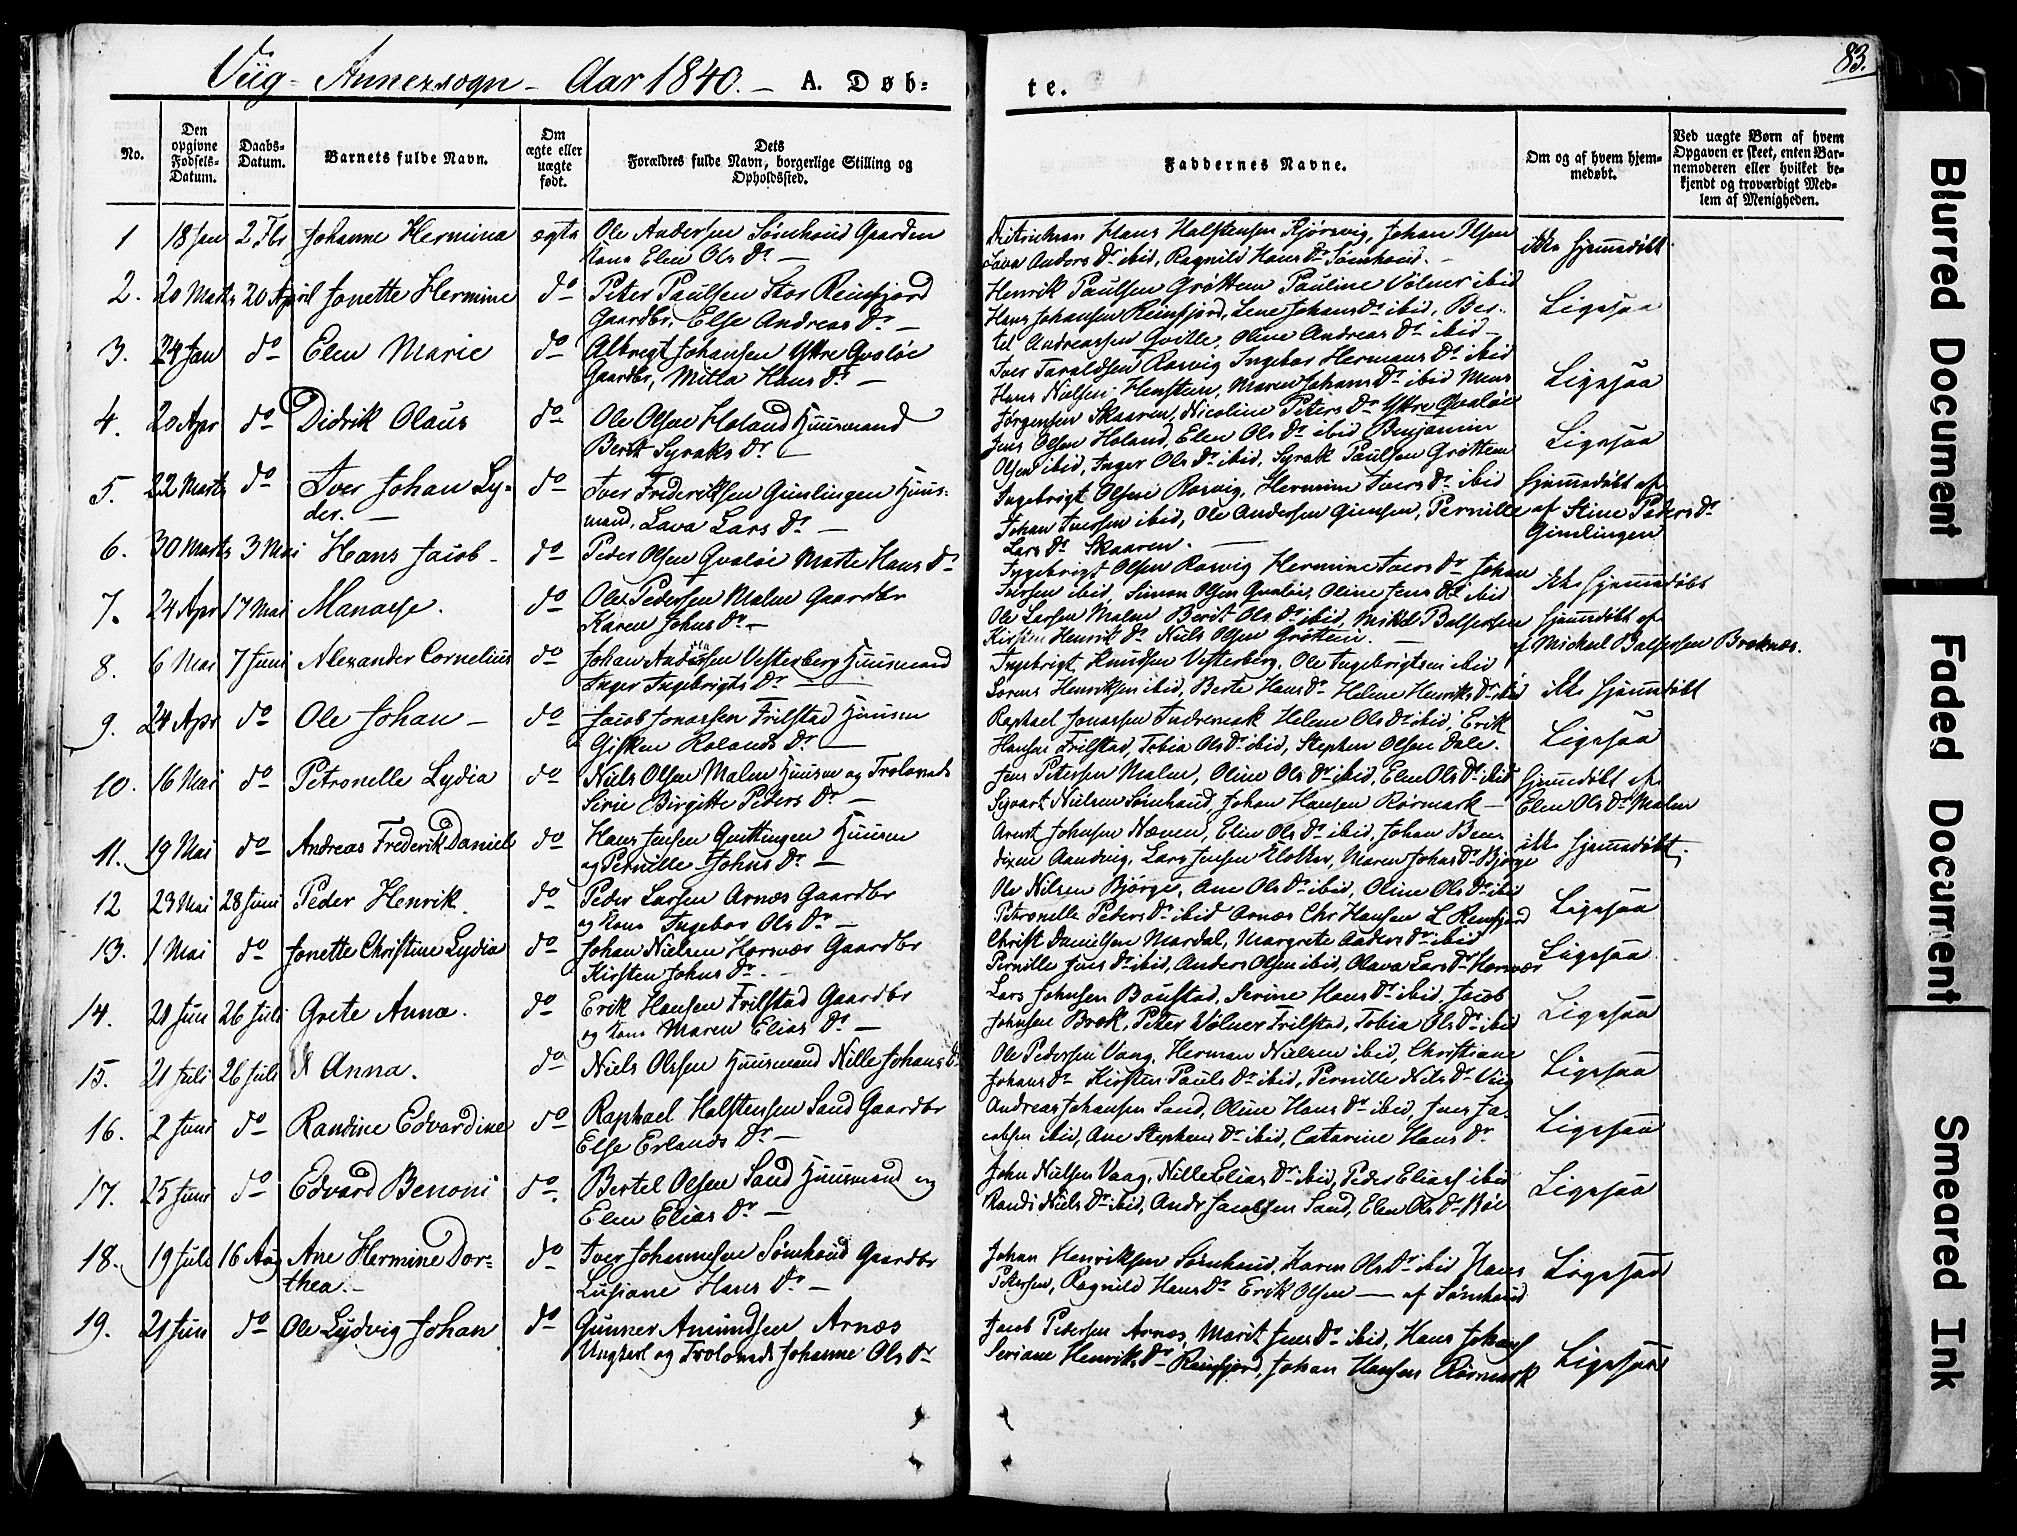 Viig - Annexsogn - Aar 1840. - A. Døb-
te.
83.
No.
Den opgivne Fødsels-Datum.
Daabs-Datum.
Barnets fulde Navn.
Om ægte eller uægte født.
Dets Forældres fulde Navn, borgerlige Stilling og Opholdssted.
Faddernes Navne.
Om og af hvem hjem-medøbt.
Ved uægte Børn af hvem Opgaven er skeet, enten Bar-nemoderen eller hvilket be-kjendt og troværdigt Med-lem af Menigheden.
1 18 Jan 2 Fbr Johanne Hermina ægte Ole Andersen Sømhoud Gaarden
Kona Elen Ols Dr -
Hans Halstensen Kjørsvig, Johan Olsen
Lava Anders Dr ibid, Ragnild Hans Dr Sømhoud. -
ikke hjemmedøbt
2. 20 Marts 20 April Jonette Hermine do Peter Paulsen Stor Reinfjord
Gaardbr, Else Andreas Dr -
Henrik Paulsen Grøttem Pauline Volner ibid
Hans Johansen Reinfjord, Lene Johans Dr ibid, Ber-
tel Andreassen Qville, Oline Andreas Dr ibid -
Ligesaa
3. 24 Jan do Elen Marie do Albregt Johansen Yttre Qvaløe
Gaardbr, Mitla Hans Dr -
Iver Taraldsen Rørvig Ingebor Hermans Dr ibid
Hans Nielsen Henstein, Maren Johans Dr ibid Mons
Jørgensen Skaaren, Nicoline Peters Dr Yttre Qvaløe
Ligesaa
4. 20 Apr do Didrik Olaus do Ole Olsen Holand Huusmand
Berit Syraks Dr -
Jens Olsen Holand, Elen Ols Dr ibid Benjamin
Olsen ibid, Inger Ols Dr ibid, Syrak Paulsen Grøttem
Ligesaa
5. 22 Marts do Iver Johan Ly-
der. -
do Iver Frederiksen Gimlingen Huus-
mand, Lava Lars Dr -
Ingebrigt Olsen Rørvig, Hermine Ivers Dr ibid
Johan Iversen ibid, Ole Andersen Giensen, Pernille
Lars Dr Skaaren. -
hjemmedøbt af
af Stine Peders Dr
Gimlingen
6. 30 Marts 3 Mai Hans Jacob - do Peder Olsen Qvaløe Marte Hans Dr
Ingebrigt Olsen Rørvig Hermine Ivers Dr Johan
Iversen ibid, Simon Olsen Qvaløe, Oline Jens Dr ibid
ikke hjemmedøbt
7. 24 Apr 17 Mai Manasse. do Ole Pedersen Malm Gaardbr
Karen Johns Dr -
Ole Larsen Malm Berit Ols Dr ibid, Mikkel Balsersen
Kirsten Henrik Dr Niels Olsen Grøttem. -
hjemmedøbt af
af Michael Balsersen Breknæs.
8. 6 Mai 7 Juni Alexander Cornelius do Johan Vesterberg Huusmand
Inger Ingebrigts Dr -
Ingebrigt Knudsen Vesterberg, Ole Ingebrigtsen ibid
Sørens Henriksen ibid, Berte Hans Dr Helene Henriks Dr ibid
ikke hjemmedøbt
9. 24 Apr do Ole Johan - do Jacob Jonassen Frilstad Huusm
Gisken Rolands Dr -
Raphael Jonassen Indremark Helene Ols Dr ibid, Erik
Hansen Frilstad, Tobia Ols Dr ibid, Stephen Olsen Dale.
Ligesaa
10. 16 Mai do Petronelle Lydia do Niels Olsen Malm Huusm og Trolovede
Sirie Birgitte Peders Dr -
Jens Petersen Malm, Oline Ols Dr ibid, Elen Ols Dr ibid
Syvart Nielsen Sømhoud, Johan Hansen Rørmark -
hjemmedøbt af
Elen Ols Dr Malm
11. 19 Mai do Andreas Frederik Daniel do Hans Jensen Quittingen Huusm
og Pernille Johns Dr -
Arent Johnsen Næven, Elin Ols Dr ibid, Johan Ben-
dixen Aandvig, Lars Jensen Klokker, Maren Johns Dr Bjørge
ikke hjemmedøbt.
12 23 Mai 28 Juni Peder Henrik. do Peder Larsen Arnæs Gaardbr
og Kone Ingebor Ols Dr -
Ole Nilsen Bjørge, Ane Ols Dr ibid, Oline Ols Dr ibid
Petronelle Peders Dr ibid Arnæs Chr Hansen L Reinfjord
Ligesaa
13. 1 Mai do Jonette Christine Lydia do Johan Nielsen Horsvær Gaardbr
Kirsten Johns Dr -
Christ Danielsen Mardal, Margrete Anders Dr ibid
Pernille Ivers Dr ibid, Anders Olsen ibid, Olava Lars Dr Horsvær
Ligesaa
14. 20 Jun 26 Juli Grete Anna. do Erik Hansen Frilstad Gaardbr
og Kone Maren Elias Dr -
Lars Johnsen Boustad, Serine Hans Dr ibid, Jacob
Johnsen Brek, Peter Volner Frilstad, Tobia Ols Dr ibid
Ligesaa
15. 21 Juli 26 Juli Anna. do Niels Olsen Huusmand Nille Johans Dr
Ole Pedersen Vaag, Herman Nielsen ibid, Christiane
Johans Dr Kirsten Pauls Dr ibid, Pernille Nils Dr Viig
Ligesaa
16. 2 Juni do Randine Edvardine do Raphael Halstensen Sand Gaardbr
Else Erlands Dr -
Andreas Johansen Sand, Oline Hans Dr ibid, Iver Ja-
cobsen ibid, Ane Stephens Dr ibid, Catarine Hans Dr
Ligesaa
17. 25 Juni do Edvard Benoni do Bertel Olsen Sand Huusmand og
Elen Elias Dr -
John Nielsen Vaag, Nille Elias Dr ibid, Peder Elias ibid
Randi Niels Dr ibid, Andr Jacobsen Sand, Elen Ols Dr Bøe
Ligesaa
18. 19 Juli 16 Aug Ane Hermine Dor-
thea. -
do Iver Johannesen Sømhoud Gaardbr
Lusiane Hans Dr -
Johan Henriksen Sømhoud, Karen Ols Dr ibid Hans
Petersen, Ragnild Hans Dr Erik Olsen — af Sømhoud
Ligesaa
19. 21 Jun do Ole Lydvig Johan do Gunner Amundsen Arnæs
Ungkarl og Trolovede Johanne Ols Dr
Jacob Pedersen Arnæs, Marit Ivers Dr ibid, Hans Johans
Seriane Henriks Dr Reinfjord, Johan Hansen Rørmark
Ligesaa
Blurred Document
Faded Document
Smeared Ink